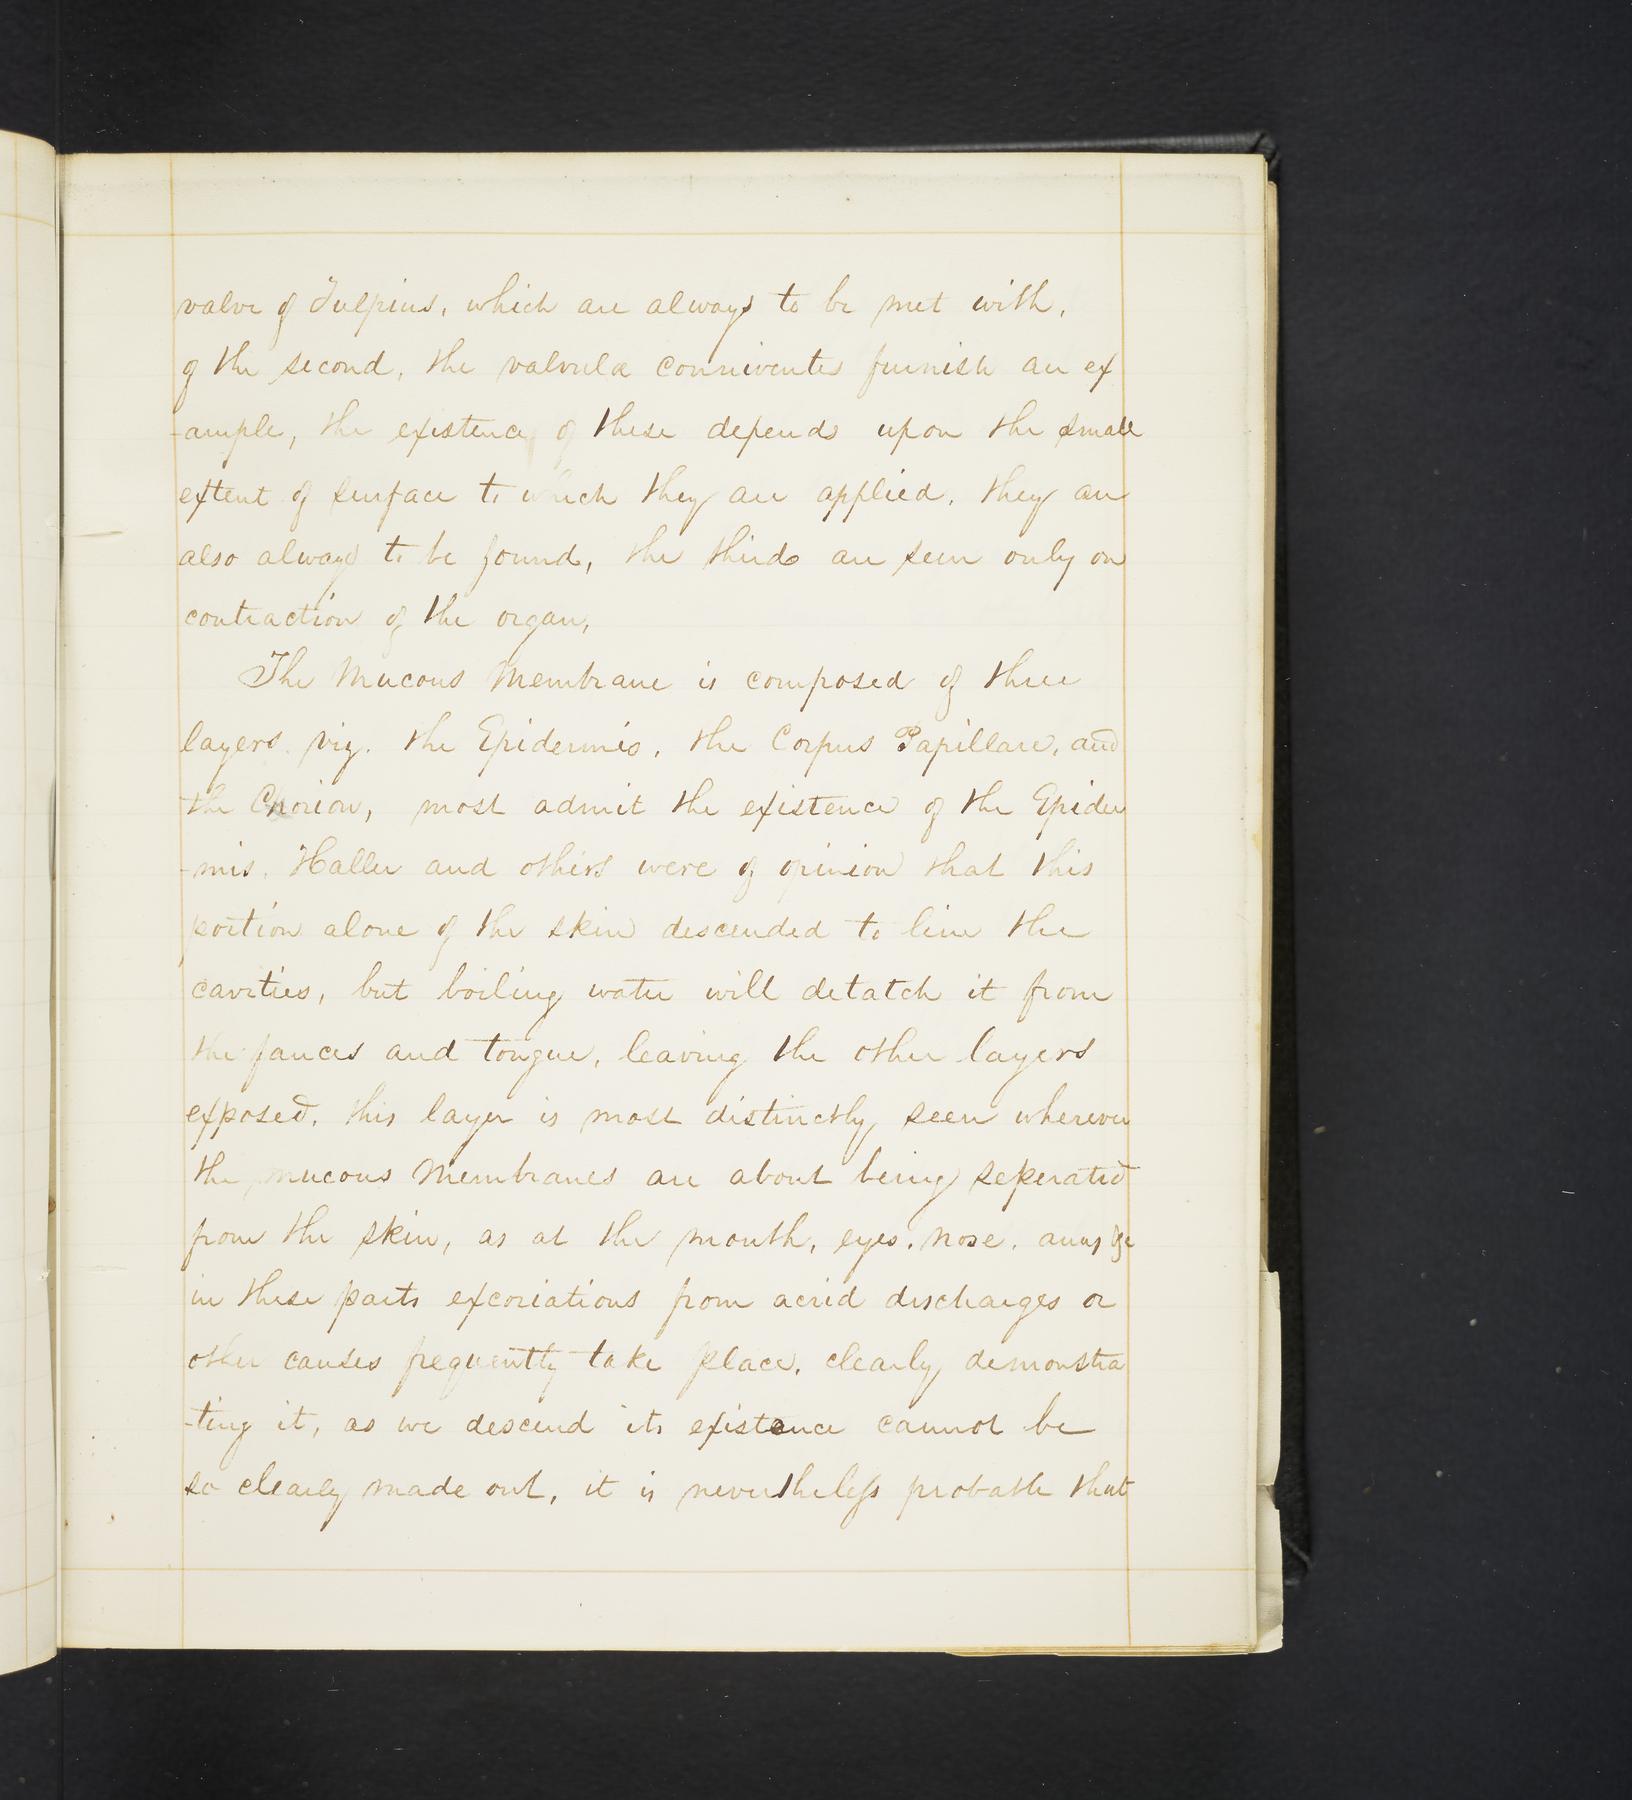 valve of Tulpius, which are always to be met with,
of the second, the valvulæ conniventes furnish an ex
-ample, the existence of these depends upon the small
extent of surface to which they are applied, they are
also always to be found, the thirds are seen only on
contraction of the organ,
The Mucous Membrane is composed of three
layers. viz. the Epidermis, the Corpus Papillare, and
the Chorion, most admit the existence of the Epider
-mis. Haller and others were of opinion that this
portion alone of the skin descended to line the
cavities, but boiling water will detatch it from
the fauces and tongue, leaving the other layers
exposed. this layer is most distinctly seen wherever
the mucous Membranes are about being seperated
from the skin, as at the mouth, eyes. nose. anus &c
in these parts excoriations from acrid discharges or
other causes frequently take place, clearly demonstra
-ting it, as we descend its existence cannot be
so clearly made out, it is nevertheless probable that